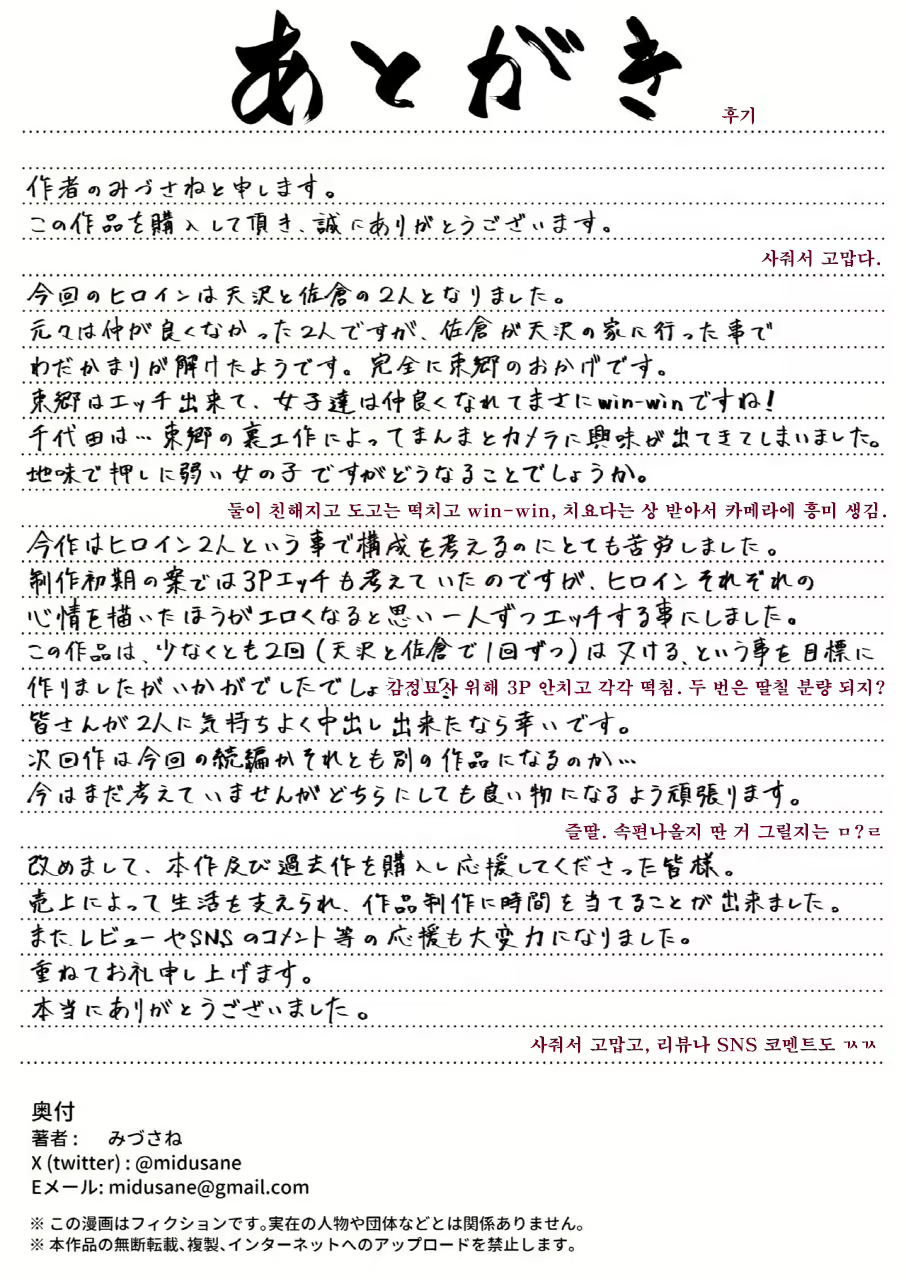 あとがき
후기
作者のみづさねと申します。
この作品を購入して頂き、誠にありがとうございます。
사줘서 고맙다.
今回のヒロインは天沢と佐倉の2人となりました。
元々は仲が良くなかった2人ですが、佐倉が天沢の家に行った事で
わだかまりが解けたようです。完全に東郷のおかげです。
東郷はエッチ出来て、女子達は仲良くなれてまさにwin-winですね!
千代田は…東郷の裏工作によってまんまとカメラに興味が出てきてしまいました。
地味で押しに弱い女の子ですがどうなることでしょうか。
둘이 친해지고 도고는 떡치고 win-win, 치요다는 상 받아서 카메라에 흥미 생김.
今作はヒロイン2人という事で構成を考えるのにとても苦労しました。
制作初期の案では3Pエッチも考えていたのですが、ヒロインそれぞれの
心情を描いたほうがエロくなると思い一人ずつエッチする事にしました。
この作品は、少なくとも2回(天沢と佐倉で1回ずつ)はヌける、という事を目標に
作りましたがいかがでしたでしょ
감정묘사 위해 3P 안치고 각각 떡침. 두 번은 딸칠 분량 되지?
皆さんが2人に気持ちよく中出し出来たなら幸いです。
次回作は今回の続編かそれとも別の作品になるのか…
今はまだ考えていませんがどちらにしても良い物になるよう頑張ります。
즐딸. 속편나올지 딴 거 그릴지는 ㅁ?ㄹ
改めまして、本作及び過去作を購入し応援してくださった皆様。
売上によって生活を支えられ、作品制作に時間を当てることが出来ました。
また、レビューやSNSのコメント等の応援も大変力になりました。
重ねてお礼申し上げます。
本当にありがとうございました。
사줘서 고맙고, 리뷰나 SNS 코멘트도 ㄳㄳ
奥付
著者: みづさね
X (twitter) : @midusane
Eメール: midusane@gmail.com
※ この漫画はフィクションです。実在の人物や団体などとは関係ありません。
※ 本作品の無断転載、複製、インターネットへのアップロードを禁止します。